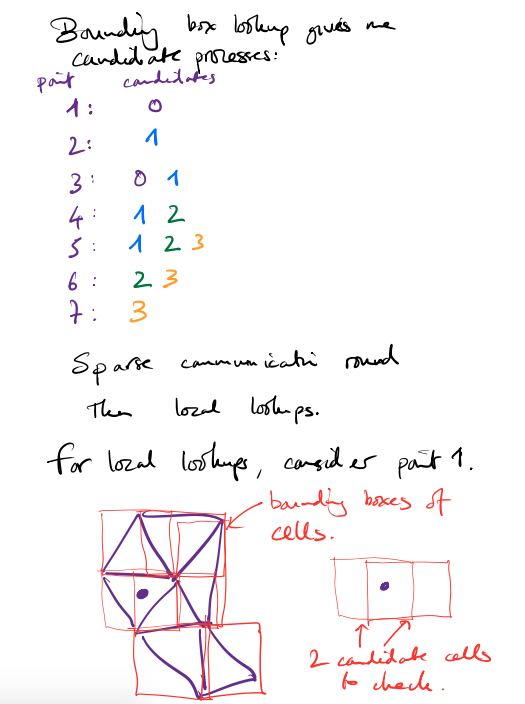 Bounding box lookup gives me
candidate processes:
point candidates
1: 0
2: 1
3: 0 1
4: 1 2
5: 1 2 3
6: 2 3
7: 3
Sparse communication round
Then local lookups.
For local lookups, consider point 1.
bounding boxes of
cells.
2 candidate cells
to check.